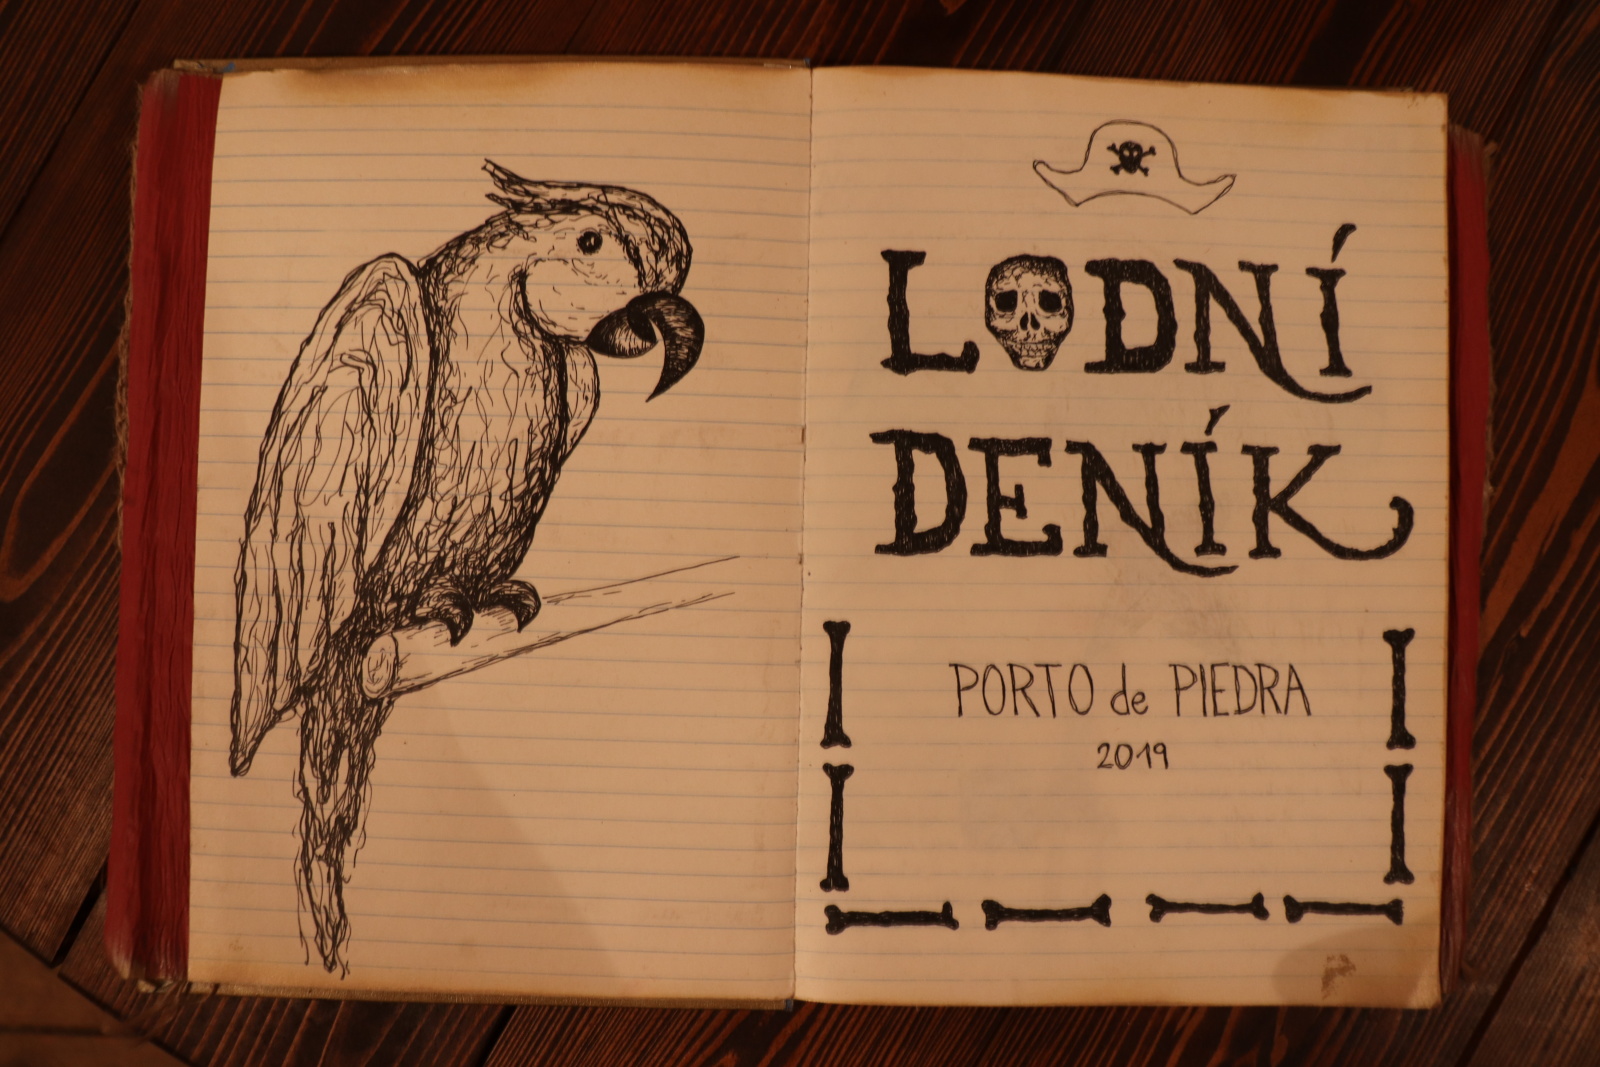 LODNÍ
DENÍK
PORTO de PIEDRA
2019